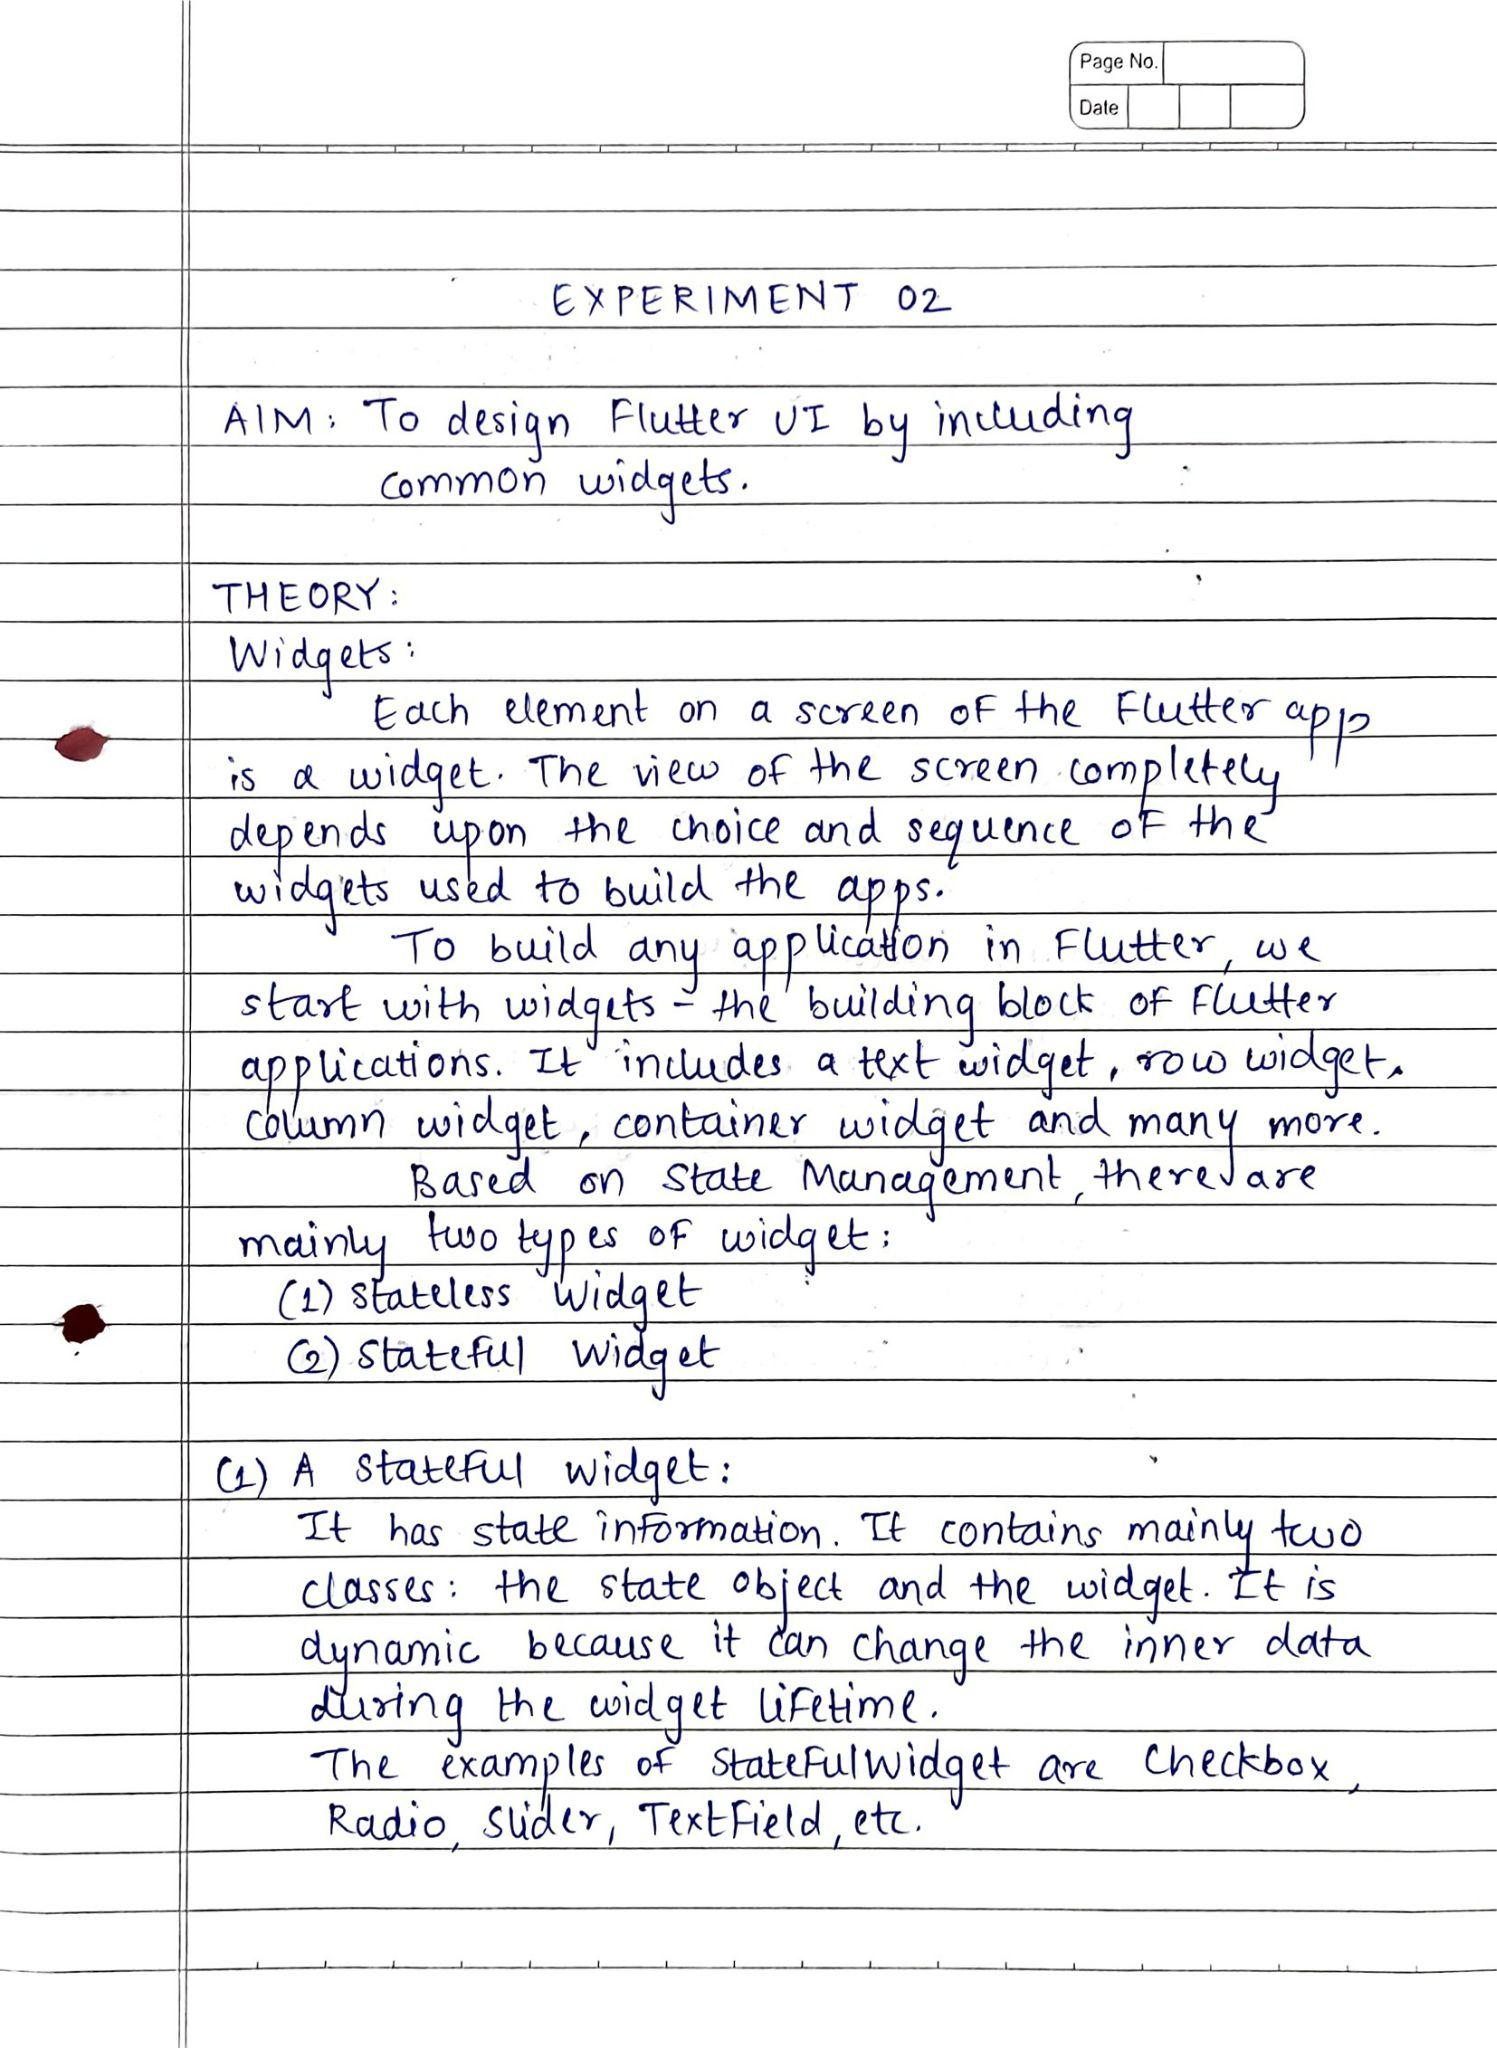 Page No.
Date
EXPERIMENT 02
AIM: To design Flutter UI by including
common widgets.
THEORY:
Widgets:
Each element on a screen of the Flutter app
is a widget. The view of the screen completely
depends upon the choice and sequence of the
widgets used to build the apps.
To build any application in Flutter, we
start with widgets - the building block of Flutter
applications. It includes a text widget, row widget,
column widget, container widget and many more.
Based on State Management, there are
mainly two types of widget:
(1) Stateless Widget
(2) Stateful Widget
(1) A Stateful widget:
It has state information. It contains mainly two
classes: the state object and the widget. It is
dynamic because it can change the inner data
during the widget lifetime.
The examples of StatefulWidget are Checkbox,
Radio, Slider, TextField, etc.